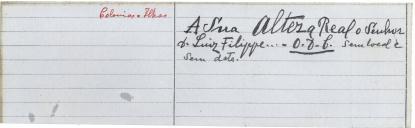 Colonias - Ilhas
A Sua Alteza Real o Senhor
D. Luiz Filippe... - O. D. C. sem local e
sem dets.